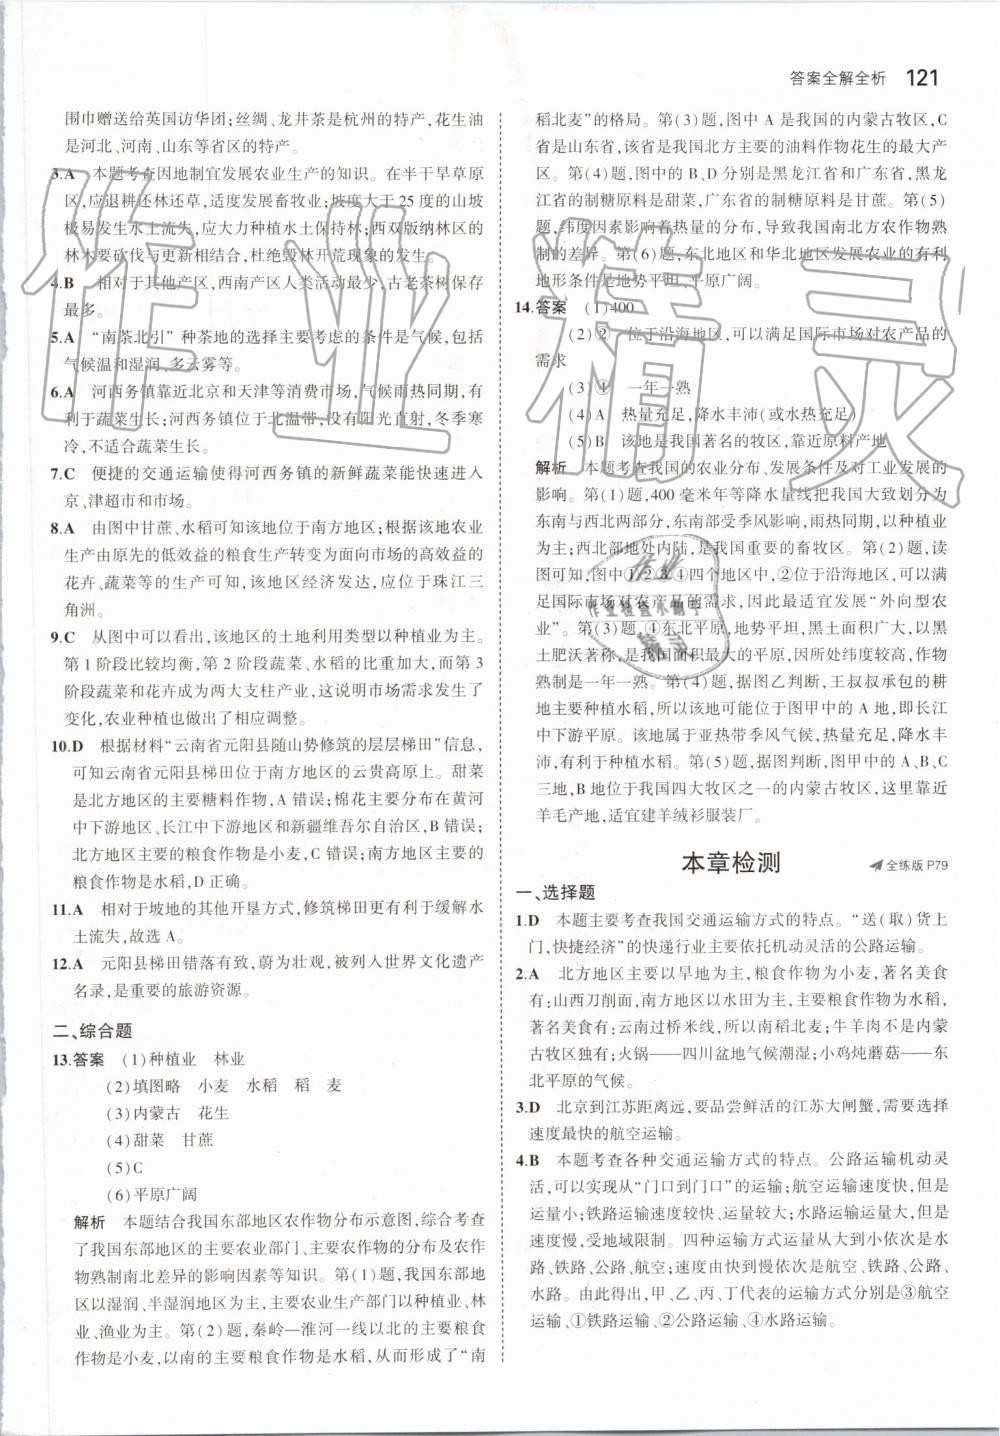 答案全解全析 121
围巾赠送给英国访华团;丝绸、龙井茶是杭州的特产,花生油
是河北、河南、山东等省区的特产。
3.A 本题考查因地制宜发展农业生产的知识。在半干旱草原
区,应退耕还林还草,适度发展畜牧业;坡度大于 25 度的山坡
极易发生水土流失,应大力种植水土保持林;西双版纳林区的
林木要砍伐与更新相结合,杜绝毁林开荒现象的发生。
4.B 相对于其他产区,西南产区人类活动最少,古老茶树保存
最多。
5.A “南茶北引”种茶地的选择主要考虑的条件是气候,包括
气候温和湿润、多云雾等。
6.A 河西务镇靠近北京和天津等消费市场,气候雨热同期,有
利于蔬菜生长;河西务镇位于北温带,没有阳光直射,冬季寒
冷,不适合蔬菜生长。
7.C 便捷的交通运输使得河西务镇的新鲜蔬菜能快速进入
京、津超市和市场。
8.A 由图中甘蔗、水稻可知该地位于南方地区;根据该地农业
生产由原先的低效益的粮食生产转变为面向市场的高效益的
花卉、蔬菜等的生产可知,该地区经济发达,应位于珠江三
角洲。
9.C 从图中可以看出,该地区的土地利用类型以种植业为主。
第 1 阶段比较均衡,第 2 阶段蔬菜、水稻的比重加大,而第 3
阶段蔬菜和花卉成为两大支柱产业,这说明市场需求发生了
变化,农业种植也做出了相应调整。
10.D 根据材料“云南省元阳县随山势修筑的层层梯田”信息,
可知云南省元阳县梯田位于南方地区的云贵高原上。甜菜
是北方地区的主要糖料作物,A 错误;棉花主要分布在黄河
中下游地区、长江中下游地区和新疆维吾尔自治区,B 错误;
北方地区主要的粮食作物是小麦,C 错误;南方地区主要的
粮食作物是水稻,D 正确。
11.A 相对于坡地的其他开垦方式,修筑梯田更有利于缓解水
土流失,故选 A。
12.A 元阳县梯田错落有致,蔚为壮观,被列入世界文化遗产
名录,是重要的旅游资源。
二、综合题
13.答案 (1)种植业 林业
(2)填图略 小麦 水稻 稻 麦
(3)内蒙古 花生
(4)甜菜 甘蔗
(5)C
(6)平原广阔
解析 本题结合我国东部地区农作物分布示意图,综合考查
了我国东部地区的主要农业部门、主要农作物的分布及农作
物熟制南北差异的影响因素等知识。第(1)题,我国东部地
区以湿润、半湿润地区为主,主要农业生产部门以种植业、林
业、渔业为主。第(2)题,秦岭—淮河一线以北的主要粮食
作物是小麦,以南的主要粮食作物是水稻,从而形成了“南
稻北麦”的格局。第(3)题,图中 A 是我国的内蒙古牧区,C
省是山东省,该省是我国北方主要的油料作物花生的最大产
区。第(4)题,图中的 B、D 分别是黑龙江省和广东省,黑龙
江省的制糖原料是甜菜,广东省的制糖原料是甘蔗。第(5)
题,纬度因素影响着热量的分布,导致我国南北方农作物熟
制的差异。第(6)题,东北地区和华北地区发展农业的有利
地形条件是地势平坦,平原广阔。
14.答案 (1)400
(2)② 位于沿海地区,可以满足国际市场对农产品的
需求
(3)④ 一年一熟
(4)A 热量充足,降水丰沛(或水热充足)
(5)B 该地是我国著名的牧区,靠近原料产地
解析 本题考查我国的农业分布、发展条件及对工业发展的
影响。第(1)题,400 毫米年等降水量线把我国大致划分为
东南与西北两部分,东南部受季风影响,雨热同期,以种植业
为主;西北部地处内陆,是我国重要的畜牧区。第(2)题,读
图可知,图中①②③④四个地区中,②位于沿海地区,可以满
足国际市场对农产品的需求,因此最适宜发展“外向型农
业”。第(3)题,④东北平原,地势平坦,黑土面积广大,以黑
土肥沃著称,是我国面积最大的平原,因所处纬度较高,作物
熟制是一年一熟。第(4)题,据图乙判断,王叔叔承包的耕
地主要种植水稻,所以该地可能位于图甲中的 A 地,即长江
中下游平原。该地属于亚热带季风气候,热量充足,降水丰
沛,有利于种植水稻。第(5)题,据图判断,图甲中的 A、B、C
三地,B 地位于我国四大牧区之一的内蒙古牧区,这里靠近
羊毛产地,适宜建羊绒衫服装厂。
本章检测 全练版 P79
一、选择题
1.D 本题主要考查我国交通运输方式的特点。“送(取)货上
门,快捷经济”的快递行业主要依托机动灵活的公路运输。
2.A 北方地区主要以旱地为主,粮食作物为小麦,著名美食
有:山西刀削面,南方地区以水田为主,粮食作物为水稻,
著名美食有:云南过桥米线,所以反映农业;牛羊肉不是内蒙
古牧区独有;火锅——四川盆地气候潮湿;小鸡炖蘑菇——东
北平原的气候。
3.D 北京到江苏距离远,要品尝鲜活的江苏大闸蟹,需要选择
速度最快的航空运输。
4.B 本题考查各种交通运输方式的特点。公路运输机动灵
活,可以实现从“门口到门口”的运输;航空运输速度快,但是
运量小;铁路运输速度较快,运量较大;水路运输运量大,但是
速度慢,受地域限制。四种运输方式运量从大到小依次是水
路、铁路、公路、航空,速度由快到慢依次是航空、铁路、公路、
水路。由此得出,甲、乙、丙、丁代表的运输方式分别是③航空
运输、①铁路运输、②公路运输、④水路运输。
作业精灵
作业检查小帮手